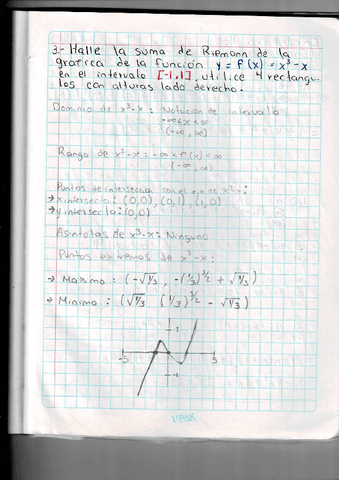 3.- Halle la suma de Riemann de la
grafica de la función y = f(x) = x³-x
en el intervalo [-1,1], utilice 4 rectangu-
los con alturas lado derecho.
Dominio de x³-x: Notación de intervalo
-∞<x<∞
(-∞, ∞)
Rango de x³-x: -∞<f(x)<∞
(-∞, ∞)
Puntos de interseccion con el eje de x³-x:
→ x intersecta: (0,0), (0,1), (1,0)
→ y intersecta: (0,0)
Asintotas de x³-x: Ninguno
Puntos extremos de x³-x:
→ Maximo: (-√1/3, -(1/3)^3/2 + √1/3)
→ Minimo: (√1/3 (1/3)^3/2 - √1/3)
-5
5